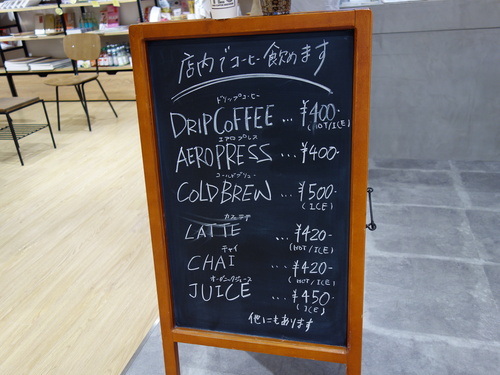 店内でコーヒー飲めます
ドリップコーヒー
DRIP COFFEE ... ¥400-
(HOT/ICE)
エアロプレス
AEROPRESS ... ¥400-
コールドブリュー
COLD BREW ... ¥500-
(ICE)
カフェラテ
LATTE ... ¥420-
(HOT/ICE)
チャイ
CHAI ... ¥420-
(HOT/ICE)
オーガニックジュース
JUICE ... ¥450-
(ICE)
他にもあります